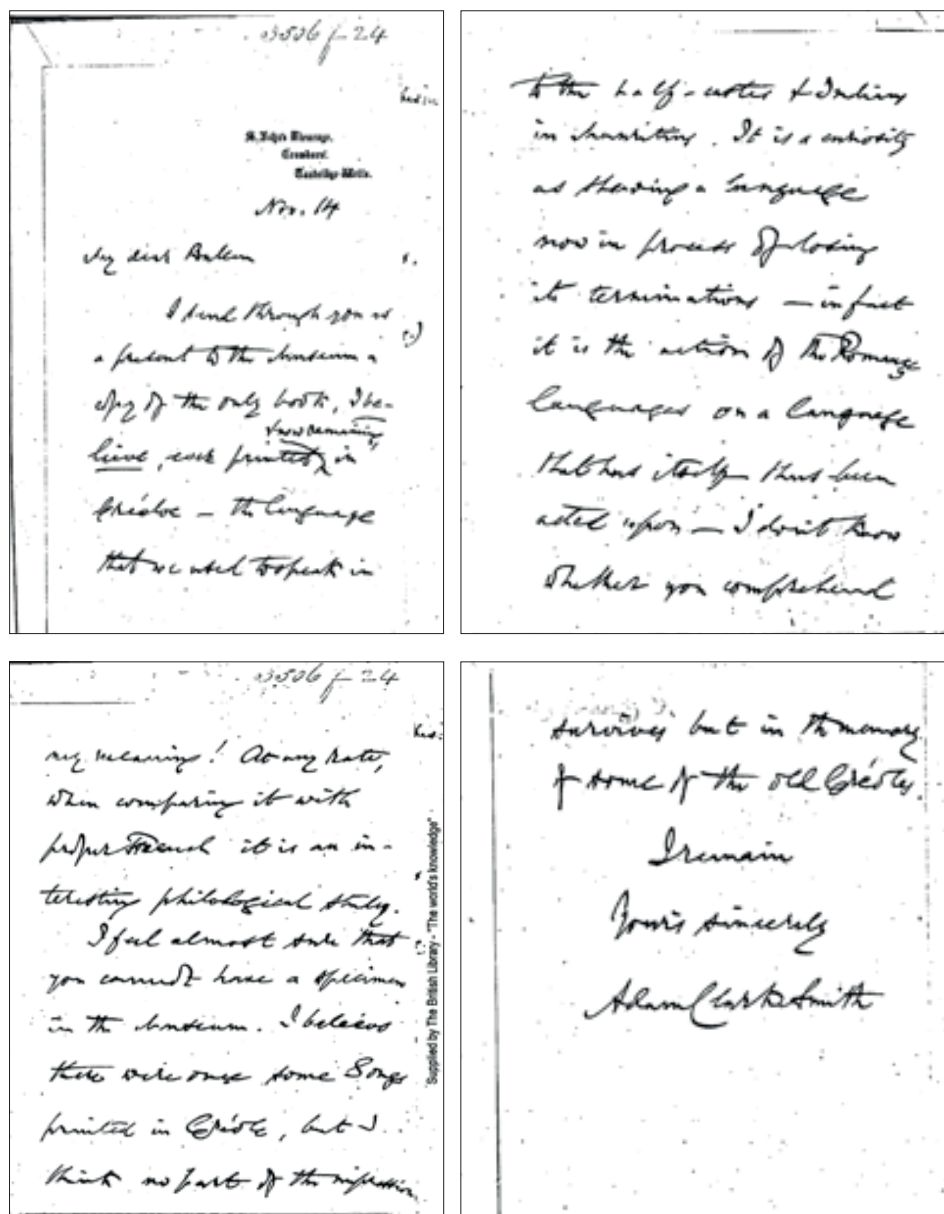 3506 f 24
St. John's Vicarage,
Crowboro',
Tunbridge Wells.
Nov. 14
My dear
I send through you as
a present to the Museum a
copy of the only book, I be-
& now remaining,
lieve, ever printed in
Créole — the language
that we used to speak in
to the half-castes & Indians
in Mauritius. It is a curiosity
as shewing a language
now in process of losing
its terminations — in fact
it is the action of the Romance
languages on a language
that has itself thus been
acted upon — I don't know
whether you comprehend
3506 f 24
my meaning! At any rate,
when comparing it with
proper French it is an in-
teresting philological study.
I feel almost sure that
you cannot have a specimen
in the Museum. I believe
there were once some Songs
printed in Créole, but I
think no part of the impression
Supplied by The British Library - "The world's knowledge"
survives but in the memory
of some of the old Créoles.
I remain
Yours sincerely
Adam Clarke Smith